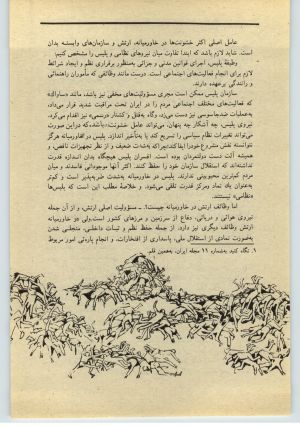 عامل اصلی اکثر خشونت‌ها در خاورمیانه، ارتش و سازمان‌های وابسته بدان
است. شاید لازم باشد که ابتدا تفاوت میان نیروهای نظامی و پلیس را مشخص کنیم:
وظیفهٔ پلیس، اجرای قوانین مدنی و جزائی به‌منظور برقراری نظم و ایجاد شرائط
لازم برای انجام فعالیت‌های اجتماعی است. درست مانند وظائفی که مأموران راهنمائی
و رانندگی برعهده دارند.
سازمان پلیس ممکن است مجری مسؤولیت‌های مخفی نیز باشد، مانند «ساواک»
که فعالیت‌های مختلف اجتماعی مردم را در ایران تحت مراقبت شدید قرار می‌داد،
به‌عملیات ضدجاسوسی نیز دست می‌زد، و گاه به‌قتل و کشتار «رسمی» نیز اقدام می‌کرد.
نیروی پلیس، چه آشکار چه پنهان، می‌تواند عامل خشونت باشد، که در این صورت
می‌تواند تغییرات نظام سیاسی را تسریع کند یا به‌تأخیر اندازد. پلیس در خاورمیانه هرگز
نتوانسته نقش مشروع خود را ایفا کند چرا که به‌شدت ضعیف و از نظر تجهیزات ناقص، و
همیشه آلت دست دولتمردان بوده است. افسران پلیس هیچگاه بدان اندازه قدرت
نداشته‌اند که استقلال سازمان خود را حفظ کنند. اکثر آنها موجوداتی فاسدند و میان
مردم کم‌ترین محبوبیتی ندارند. پلیس در خاورمیانه به‌شدت ضربه‌پذیر است و کم‌تر
به‌عنوان یک نماد ومرکز قدرت تلقی می‌شود. و خلاصهٔ مطلب این است که پلیس‌ها
«نظامی» نیستند.
اما وظائف ارتش در خاورمیانه چیست؟ـ مسئولیت اصلی ارتش، و از آن جمله
نیروی هوائی و دریائی، دفاع از سرزمین و مرزهای کشور است. ولی در خاورمیانه
ارتش وظائف دیگری نیز دارد. از جمله حفظ نظم و ثبات داخلی، متجلی شدن
به‌صورت نمادی از استقلال ملی، پاسداری از افتخارات، و انجام پاره‌ئی امور مربوط
۱. نگاه کنید به‌شماره ۱۱ مجله ایران، به‌همین قلم